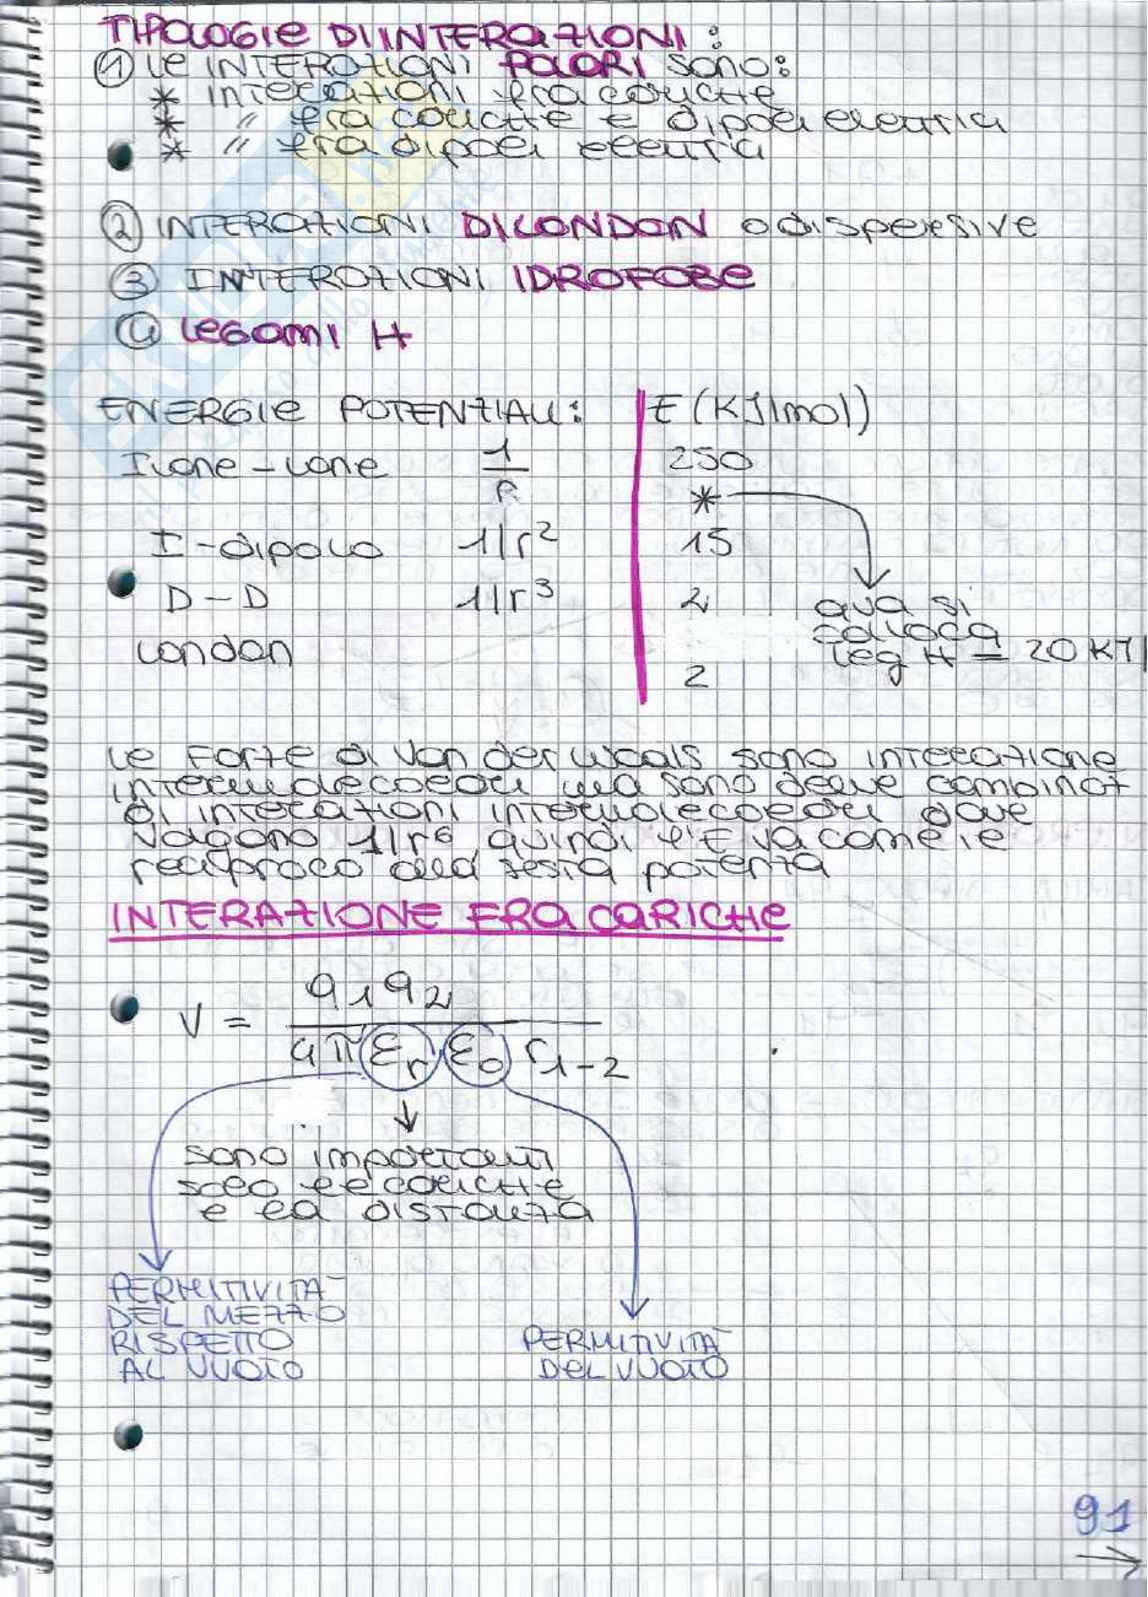 TIPOLOGIE DI INTERAZIONI:
① Le INTERAZIONI POLARI sono:
* interazioni fra cariche
* " fra cariche e dipoli elettrici
* " fra dipoli elettrici
② INTERAZIONI DI LONDON o dispersive
③ INTERAZIONI IDROFOBE
④ Legami H
ENERGIE POTENZIALI: E (KJ/mol)
Ione - ione 1/r 250
*
I - dipolo 1/r² 15
D - D 1/r³ 2
qua si
colloca
leg H = 20 KJ/
London 2
Le Forze di Van der Waals sono interazione
intermolecolari ma sono delle combinaz
di interazioni intermolecolari dove
valgono 1/r⁶ quindi l'E va come il
reciproco alla sesta potenza
INTERAZIONE FRA CARICHE
V = q₁q₂ / 4π εr · ε₀ r₁₋₂
sono importanti
solo le cariche
e la distanza
PERMITIVITÀ
DEL MEZZO
RISPETTO
AL VUOTO
PERMITIVITÀ
DEL VUOTO
91